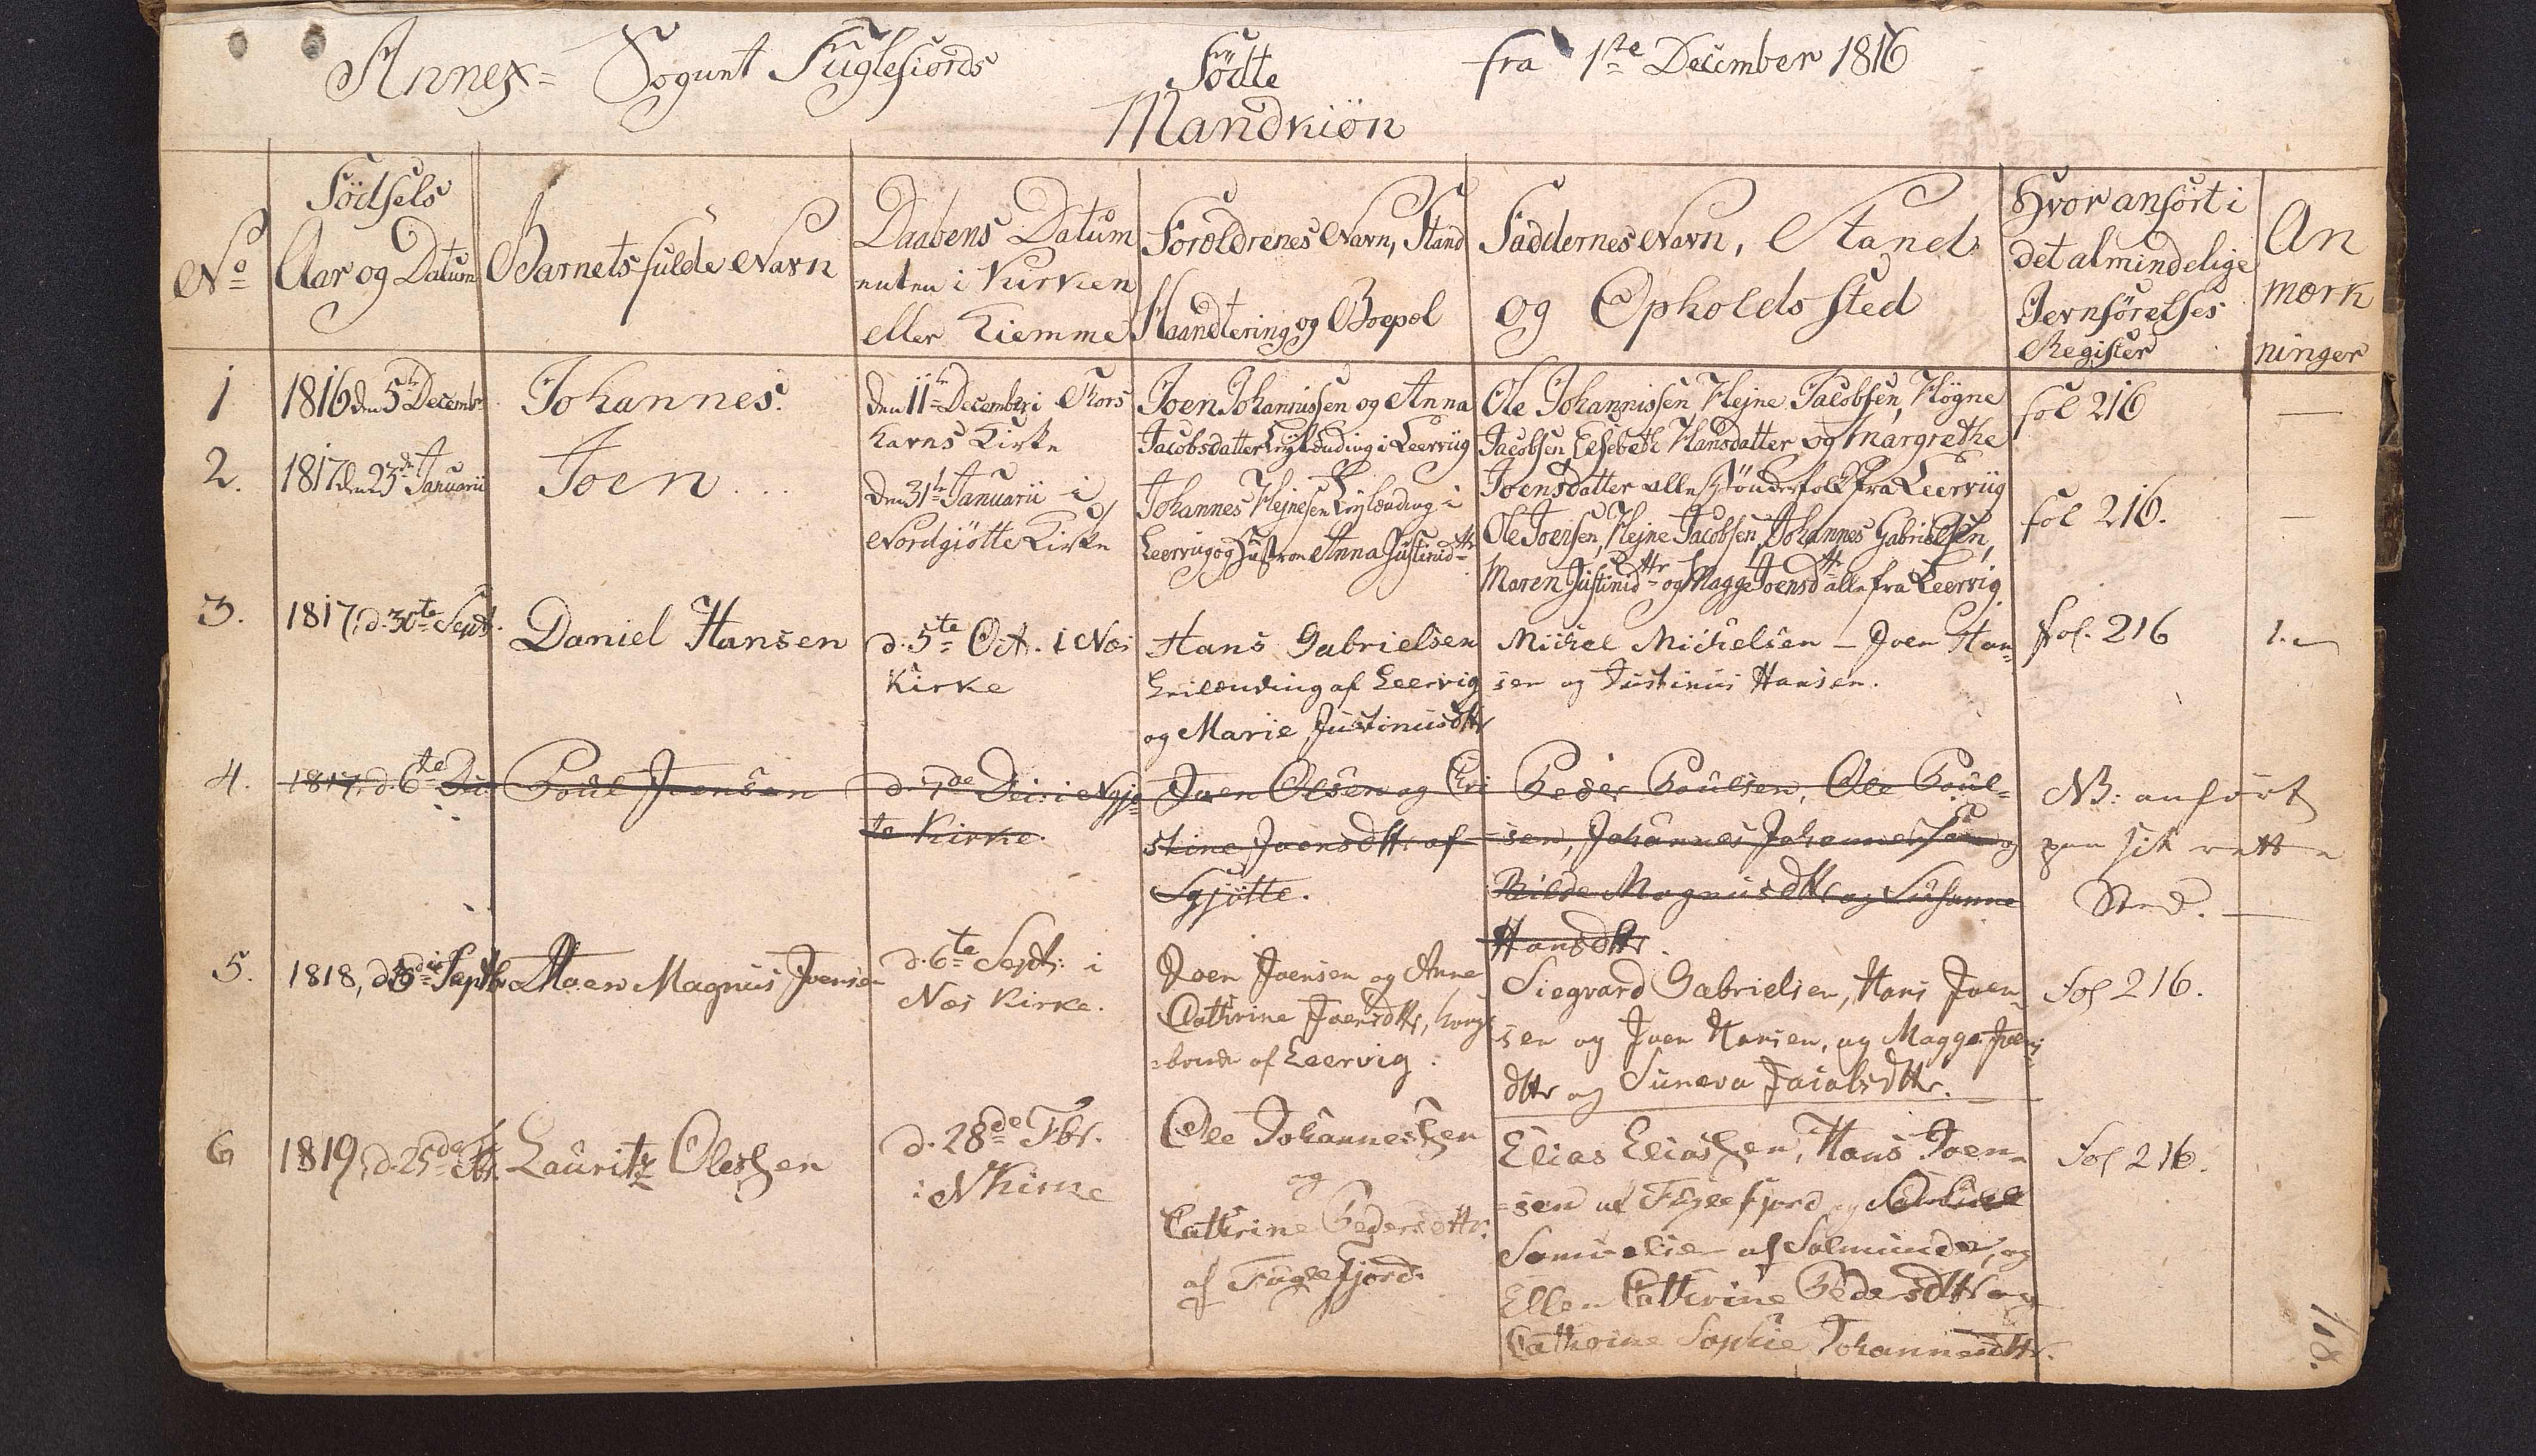 Annex= Sognet Fuglefiords Födte fra 1ste December 1816
Mandkiön
No
Födsels
Aar og Datum
Barnets fulde Navn
Daabens Datum
enten i Kirken
eller Hiemme
Forældrenes Navn, Stand
Haandtering og Boepæl
Faddernes Navn, Stand
og Opholds Sted
Hvor anfört i
det almindelige
Jevnförelses
Register
An
mærk
ninger
1
1816 den 5te Decembr
Johannes.
den 11te December i Thors
havns Kirke
Joen Johannissen og Anna
Jacobsdatter Leylænding i Leervüg
Ole Johannissen, Hejne Jacobsen, Högne
Jacobsen, Elsebeth Hansdatter og Margrethe
Joensdatter alle Bönderfolk fra Leervüg
fol 216
—
2.
1817 den 23de Januarii
Joen . . .
den 31te Januarii i
Nordgiötte Kirke
Johannes Hejnesen Leylænding i
Leervug og Hustroe Anna Justinidttr
Ole Joensen, Hejne Jacobsen, Johannes Gabrielsen,
Maren Justinidttr og Magge Joensdttr alle fra Leervig
fol 216.
—
3.
1817, d. 30te Sept.
Daniel Hansen
d. 5te Oct. i Nes
Kirke
Hans Gabrielsen
Leilænding af Leervig
og Marie Justinusdttr
Michel Michelsen — Joen Han=
sen og Justinus Hansen.
fol. 216
4.
1817, d. 6te Dec
Poul Joensen
d. 7de Dec: i Ngjö=
te Kirke.
Joen Olsen og Chri
stine Joensdttr af
Sgjötte.
Peder Poulsen, Ole Poul=
sen, Johannes Johannessen og
Magnusdttr og Susanne
Hansdttr.
NB: anfört
paa sit rette
Sted. —
5.
1818, d. Septbr
Magnus Joensen
d. 6te Septr: i
Nes Kirke.
Joen Joensen og Anne
Cathrine Joensdttr, Kongs
=bonde af Leervig.
Siegvard Gabrielsen, Hans Joen=
sen og Joen Hansen, og Magga Joens
dttr og Suneva Jacobsdttr. —
Fol 216.
6
1819, d. 25de Fbr.
Lauritz Olessen
d. 28de Fbr.
i NKirke
Ole Johannessen
og
Cathrine Pedersdttr.
af Fuglefjord.
Elias Eliassen, Hans Joen=
=sen af Fuglefjord og
Samuelsen af Sólmunde, og
Ellen Cathrine Pedersdttr og
Catherine Sophie Johannesdttr.
Fol 216.
118.